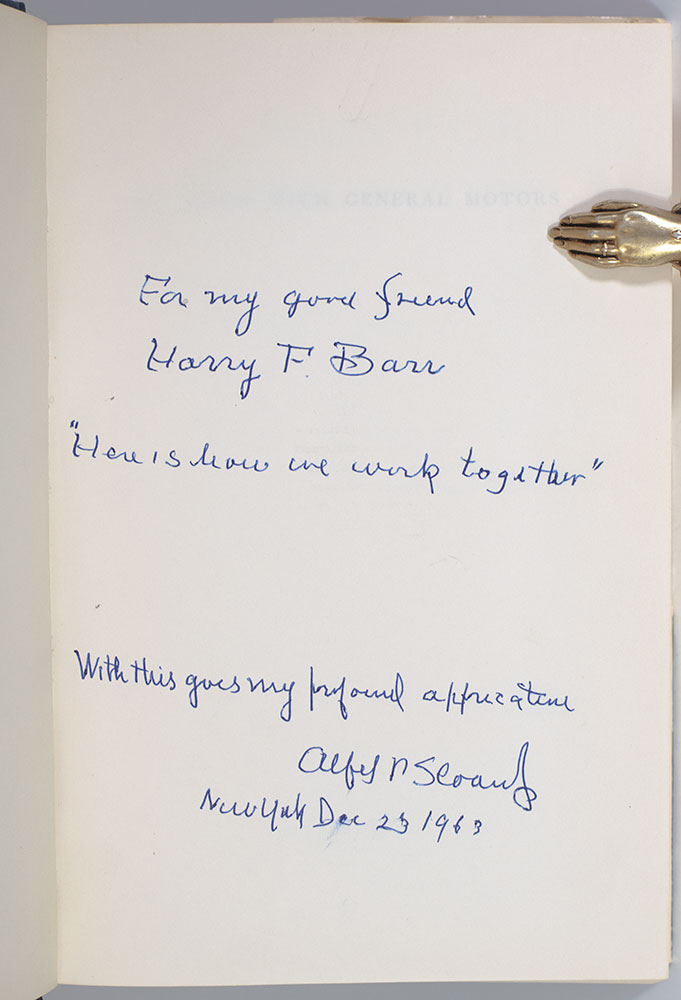 WITH GENERAL MOTORS
For my good friend
Harry F. Barr
"Here is how we work together"
With this goes my profound appreciation
Alfred P Sloan Jr
New York Dec 23 1963